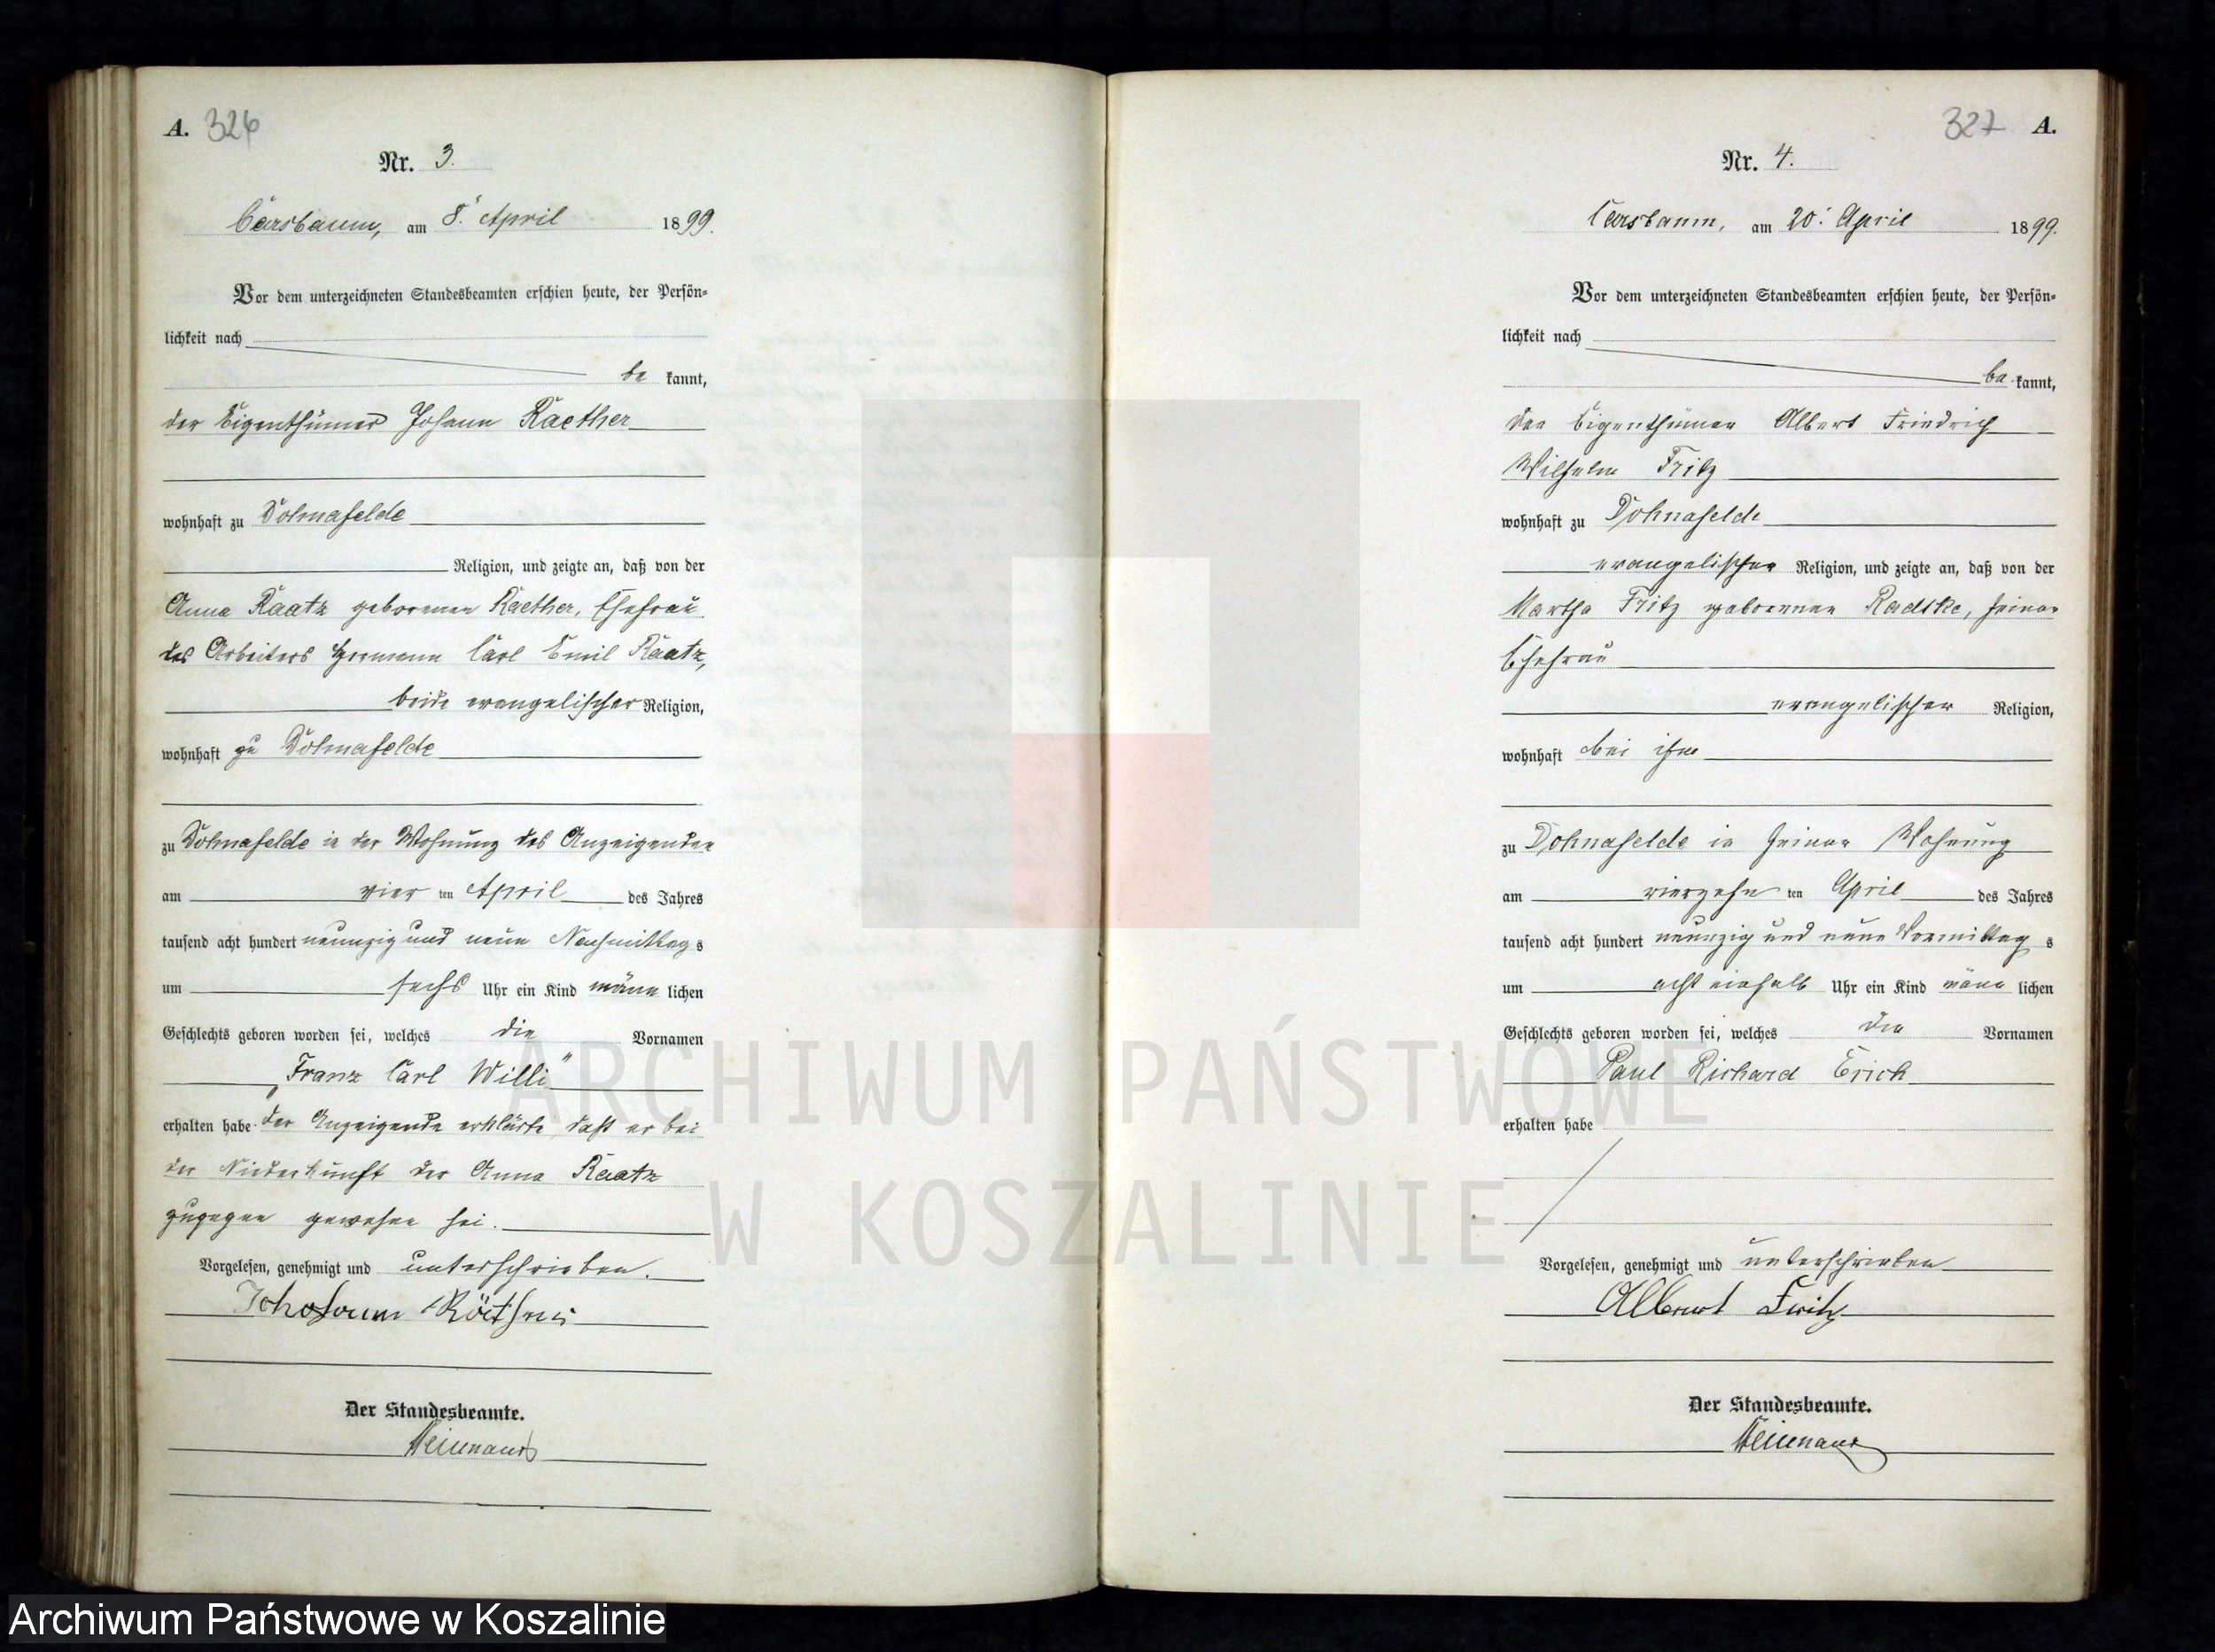 A. 326
Nr. 3.
Carsbaum, am 8. April 1899.
Vor dem unterzeichneten Standesbeamten erschien heute, der Persön-
lichkeit nach
be kannt,
der Eigenthümer Johann Raether
wohnhaft zu Dohnafelde
Religion, und zeigte an, daß von der
Anna Raatz geborenen Raether, Ehefrau
des Arbeiters Hermann Carl Emil Raatz,
beide evangelischer Religion,
wohnhaft zu Dohnafelde
zu Dohnafelde in der Wohnung des Anzeigenden
am vier ten April des Jahres
tausend acht hundert neunzig und neun Nachmittag s
um sechs Uhr ein Kind männ lichen
Geschlechts geboren worden sei, welches die Vornamen
„Franz Carl Willi“
erhalten habe. Der Anzeigende erklärte, daß er bei
der Niederkunft der Anna Raatz
zugegen gewesen sei.
Vorgelesen, genehmigt und unterschrieben.
Der Standesbeamte.
327 A.
Nr. 4.
Carsbaum, am 20. April 1899.
Vor dem unterzeichneten Standesbeamten erschien heute, der Persön-
lichkeit nach
be kannt,
der Eigenthümer Albert Friedrich
Wilhelm Fritz
wohnhaft zu Dohnafelde
evangelischer Religion, und zeigte an, daß von der
Martha Fritz geborenen Radtke, seiner
Ehefrau
evangelischer Religion,
wohnhaft bei ihm
zu Dohnafelde in seiner Wohnung
am vierzehn ten April des Jahres
tausend acht hundert neunzig und neun Vormittag s
um acht einhalb Uhr ein Kind männ lichen
Geschlechts geboren worden sei, welches die Vornamen
Paul Richard Erich
erhalten habe
Vorgelesen, genehmigt und unterschrieben
Albert Fritz
Der Standesbeamte.
ARCHIWUM PAŃSTWOWE
W KOSZALINIE
Archiwum Państwowe w Koszalinie